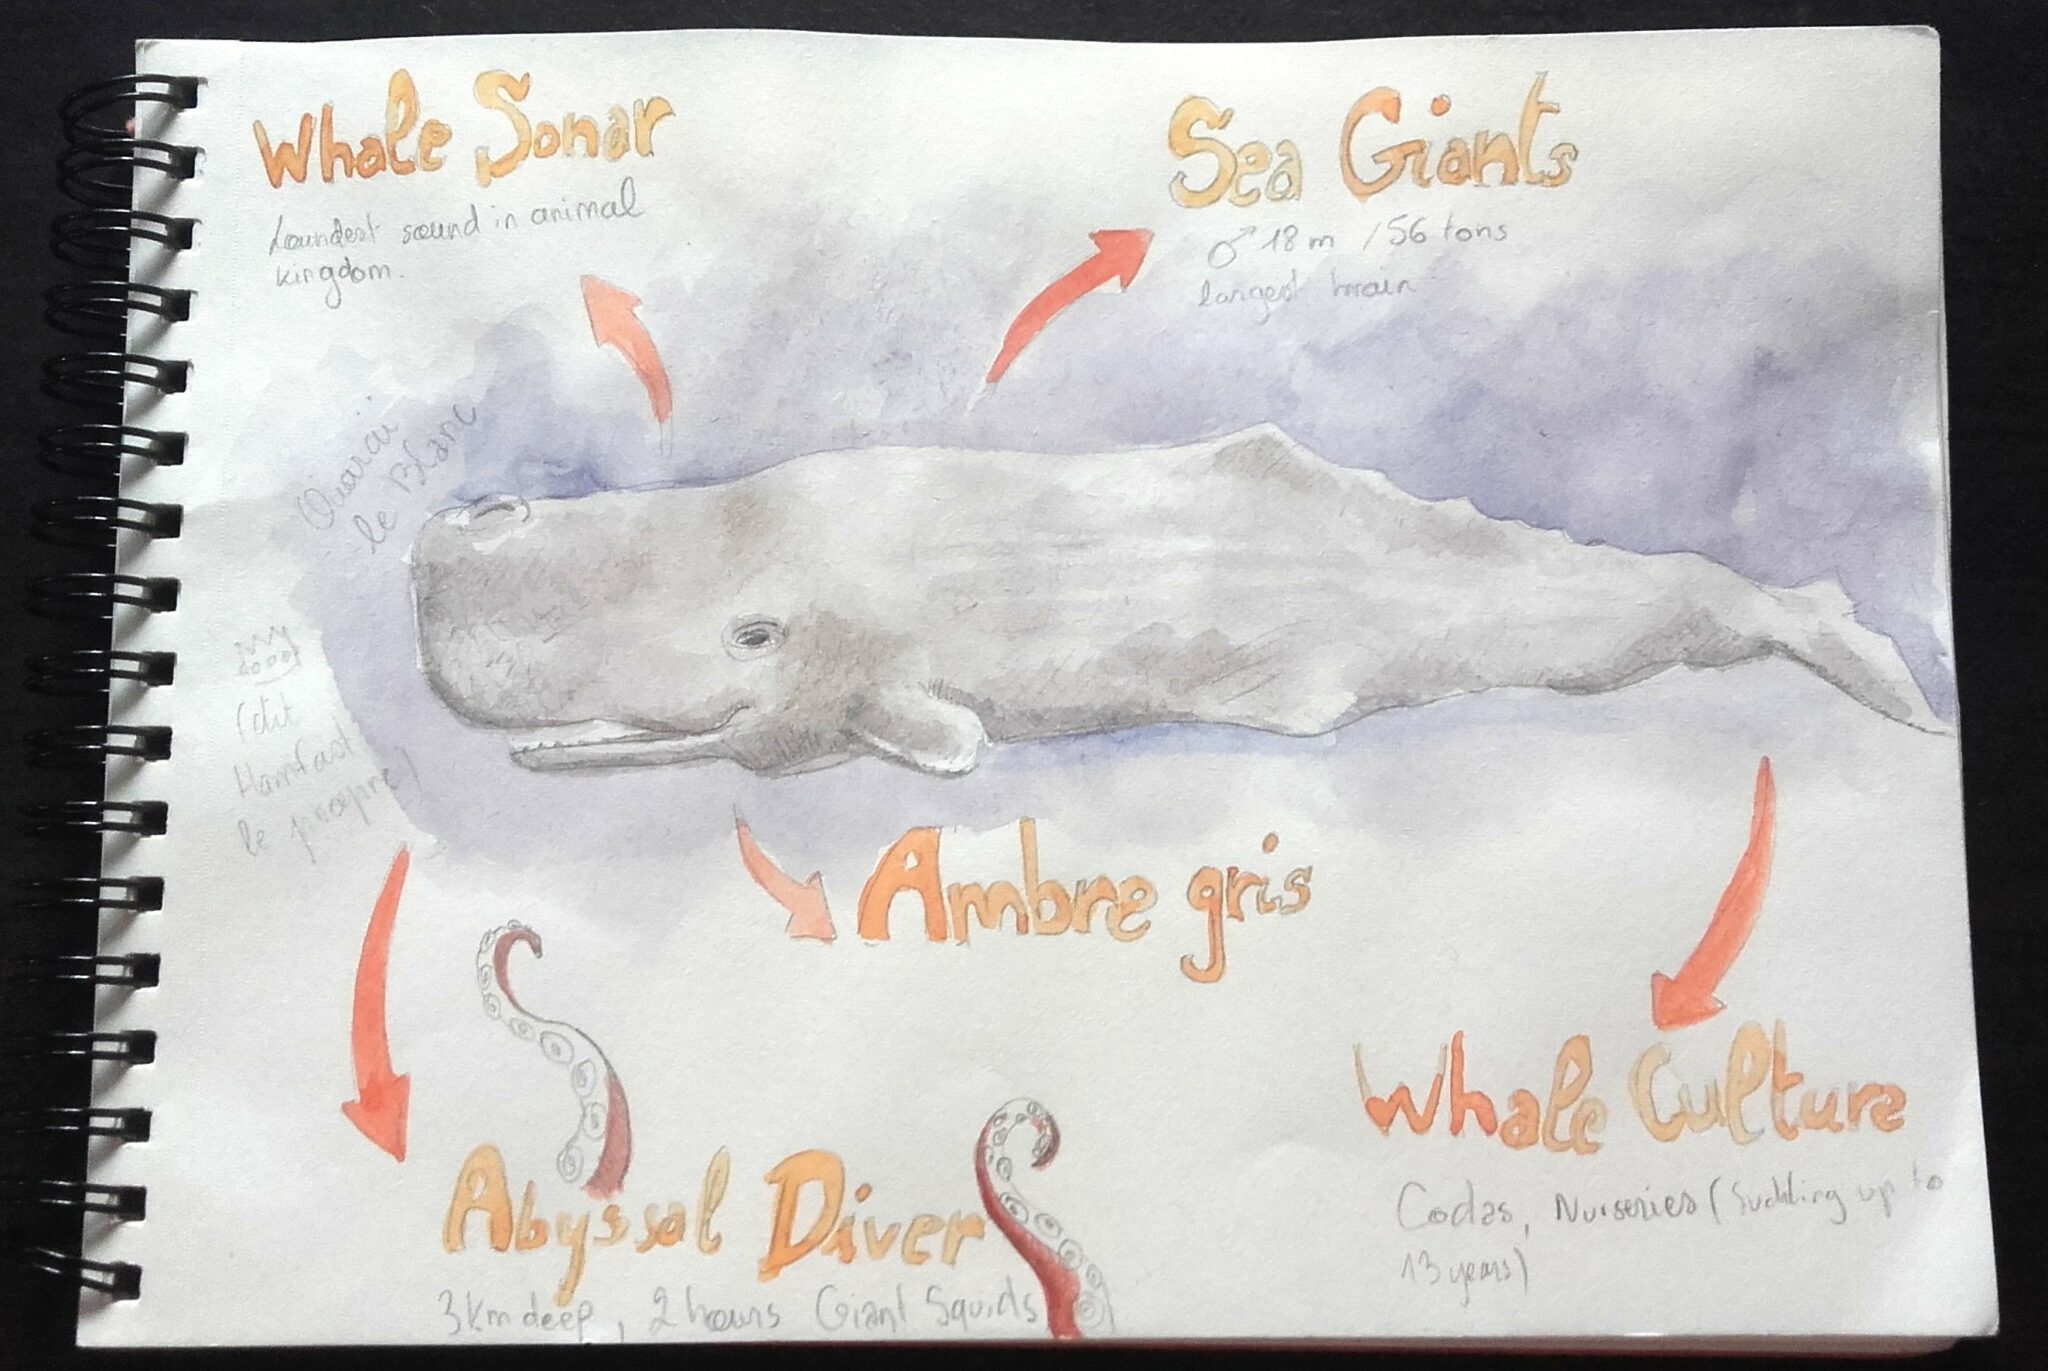 Whale Sonar
Loundest sound in animal
kingdom.
Sea Giants
♂ 18 m / 56 tons
largest brain
le Blanc
(dit
Hamfast
le propre)
Ambre gris
Whale Culture
Codas, Nurseries (Suckling up to
13 years)
Abyssal Diver
3 km deep, 2 hours Giant Squids